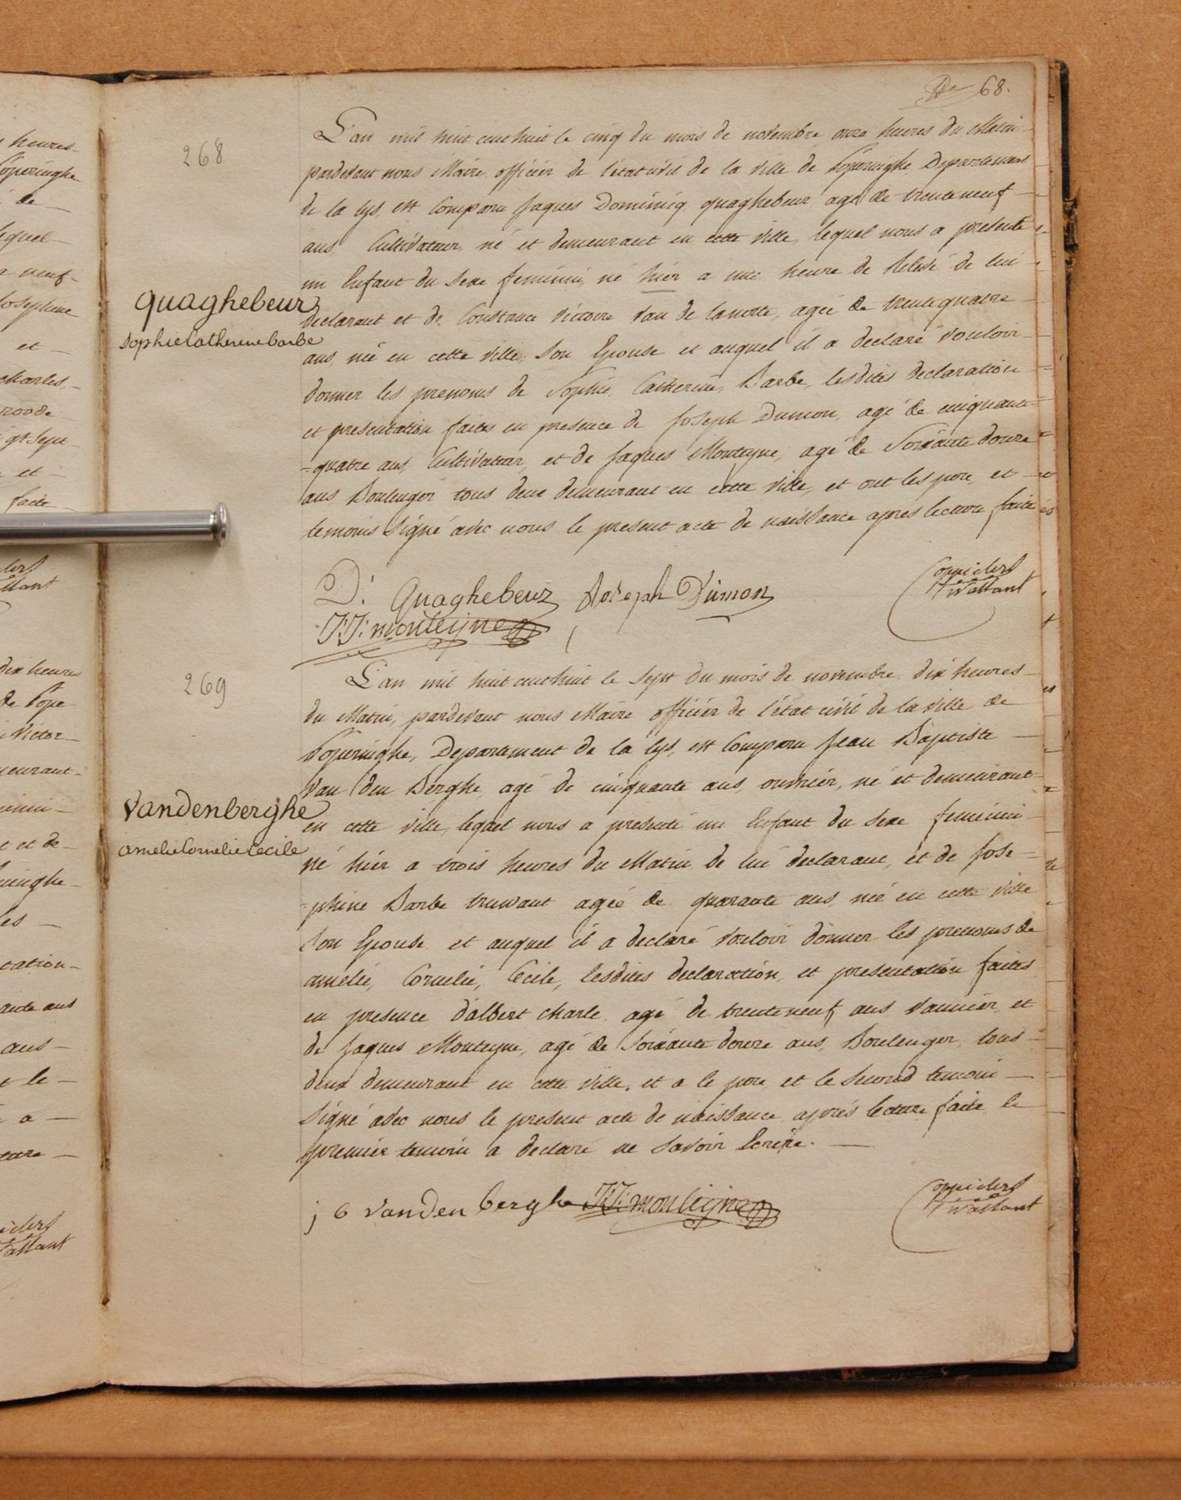 68.
268
L'an mil huit cent huit le cinq du mois de novembre onze heures du Matin
pardevant nous Maire officier de l'état civil de la ville de Poperinghe Departement
de la Lys, est Comparu Jaques Dominiq quaghebeur agé de trenteneuf
ans Cultivateur né et demeurant en cette ville, lequel nous a presenté
un Enfant du sexe feminin né hier a une heure de relevé de lui
Quaghebeur
declarant et de Constance Victoire Van de lanotte, agée de trentequatre
Sophie Catherine barbe
ans, née en cette ville, Son Epouse et auquel il a declaré vouloir
donner les prenoms de Sophie, Catherine, Barbe, lesdites declaration
et presentation faites en presence de Joseph Dumon, agé de cinquante
=quatre ans Cultivateur, et de Jaques Monteyne, agé de Soixante douze
ans Boulenger tous deux demeurant en cette ville, et ont les pere et
temoins Signé avec nous le present acte de naissance apres lecture faite
D: Quaghebeur Joseph Dumon
J:J: monteijne
269
L'an mil huit cent huit le Sept du mois de novembre dix heures
du Matin, pardevant nous Maire officier de l'état civil de la ville de
Poperinghe, Departement de la Lys, est Comparu Jean Baptiste
Van den Berghe agé de cinquante ans, ouvrier, né et demeurant
Vandenberghe
en cette ville, lequel nous a presenté un Enfant du sexe feminin
amelie Cornelie Cecile
né hier a trois heures du Matin de lui declarant, et de Jose=
=phine Barbe truwant agée de quarante ans, née en cette ville
Son Epouse et auquel il a declaré vouloir donner les prenoms de
amelie, Cornelie, Cecile, lesdites declaration et presentation faites
en presence d'albert Charle agé de trenteneuf ans vannier et
de Jaques Monteyne, agé de Soixante douze ans, Boulenger, tous
deux demeurant en cette ville, et a le pere et le Second temoin
Signé avec nous le present acte de naissance après lecture faite le
premier temoin a declaré ne savoir Ecrire.
j b vandenberghe J:J: monteijne